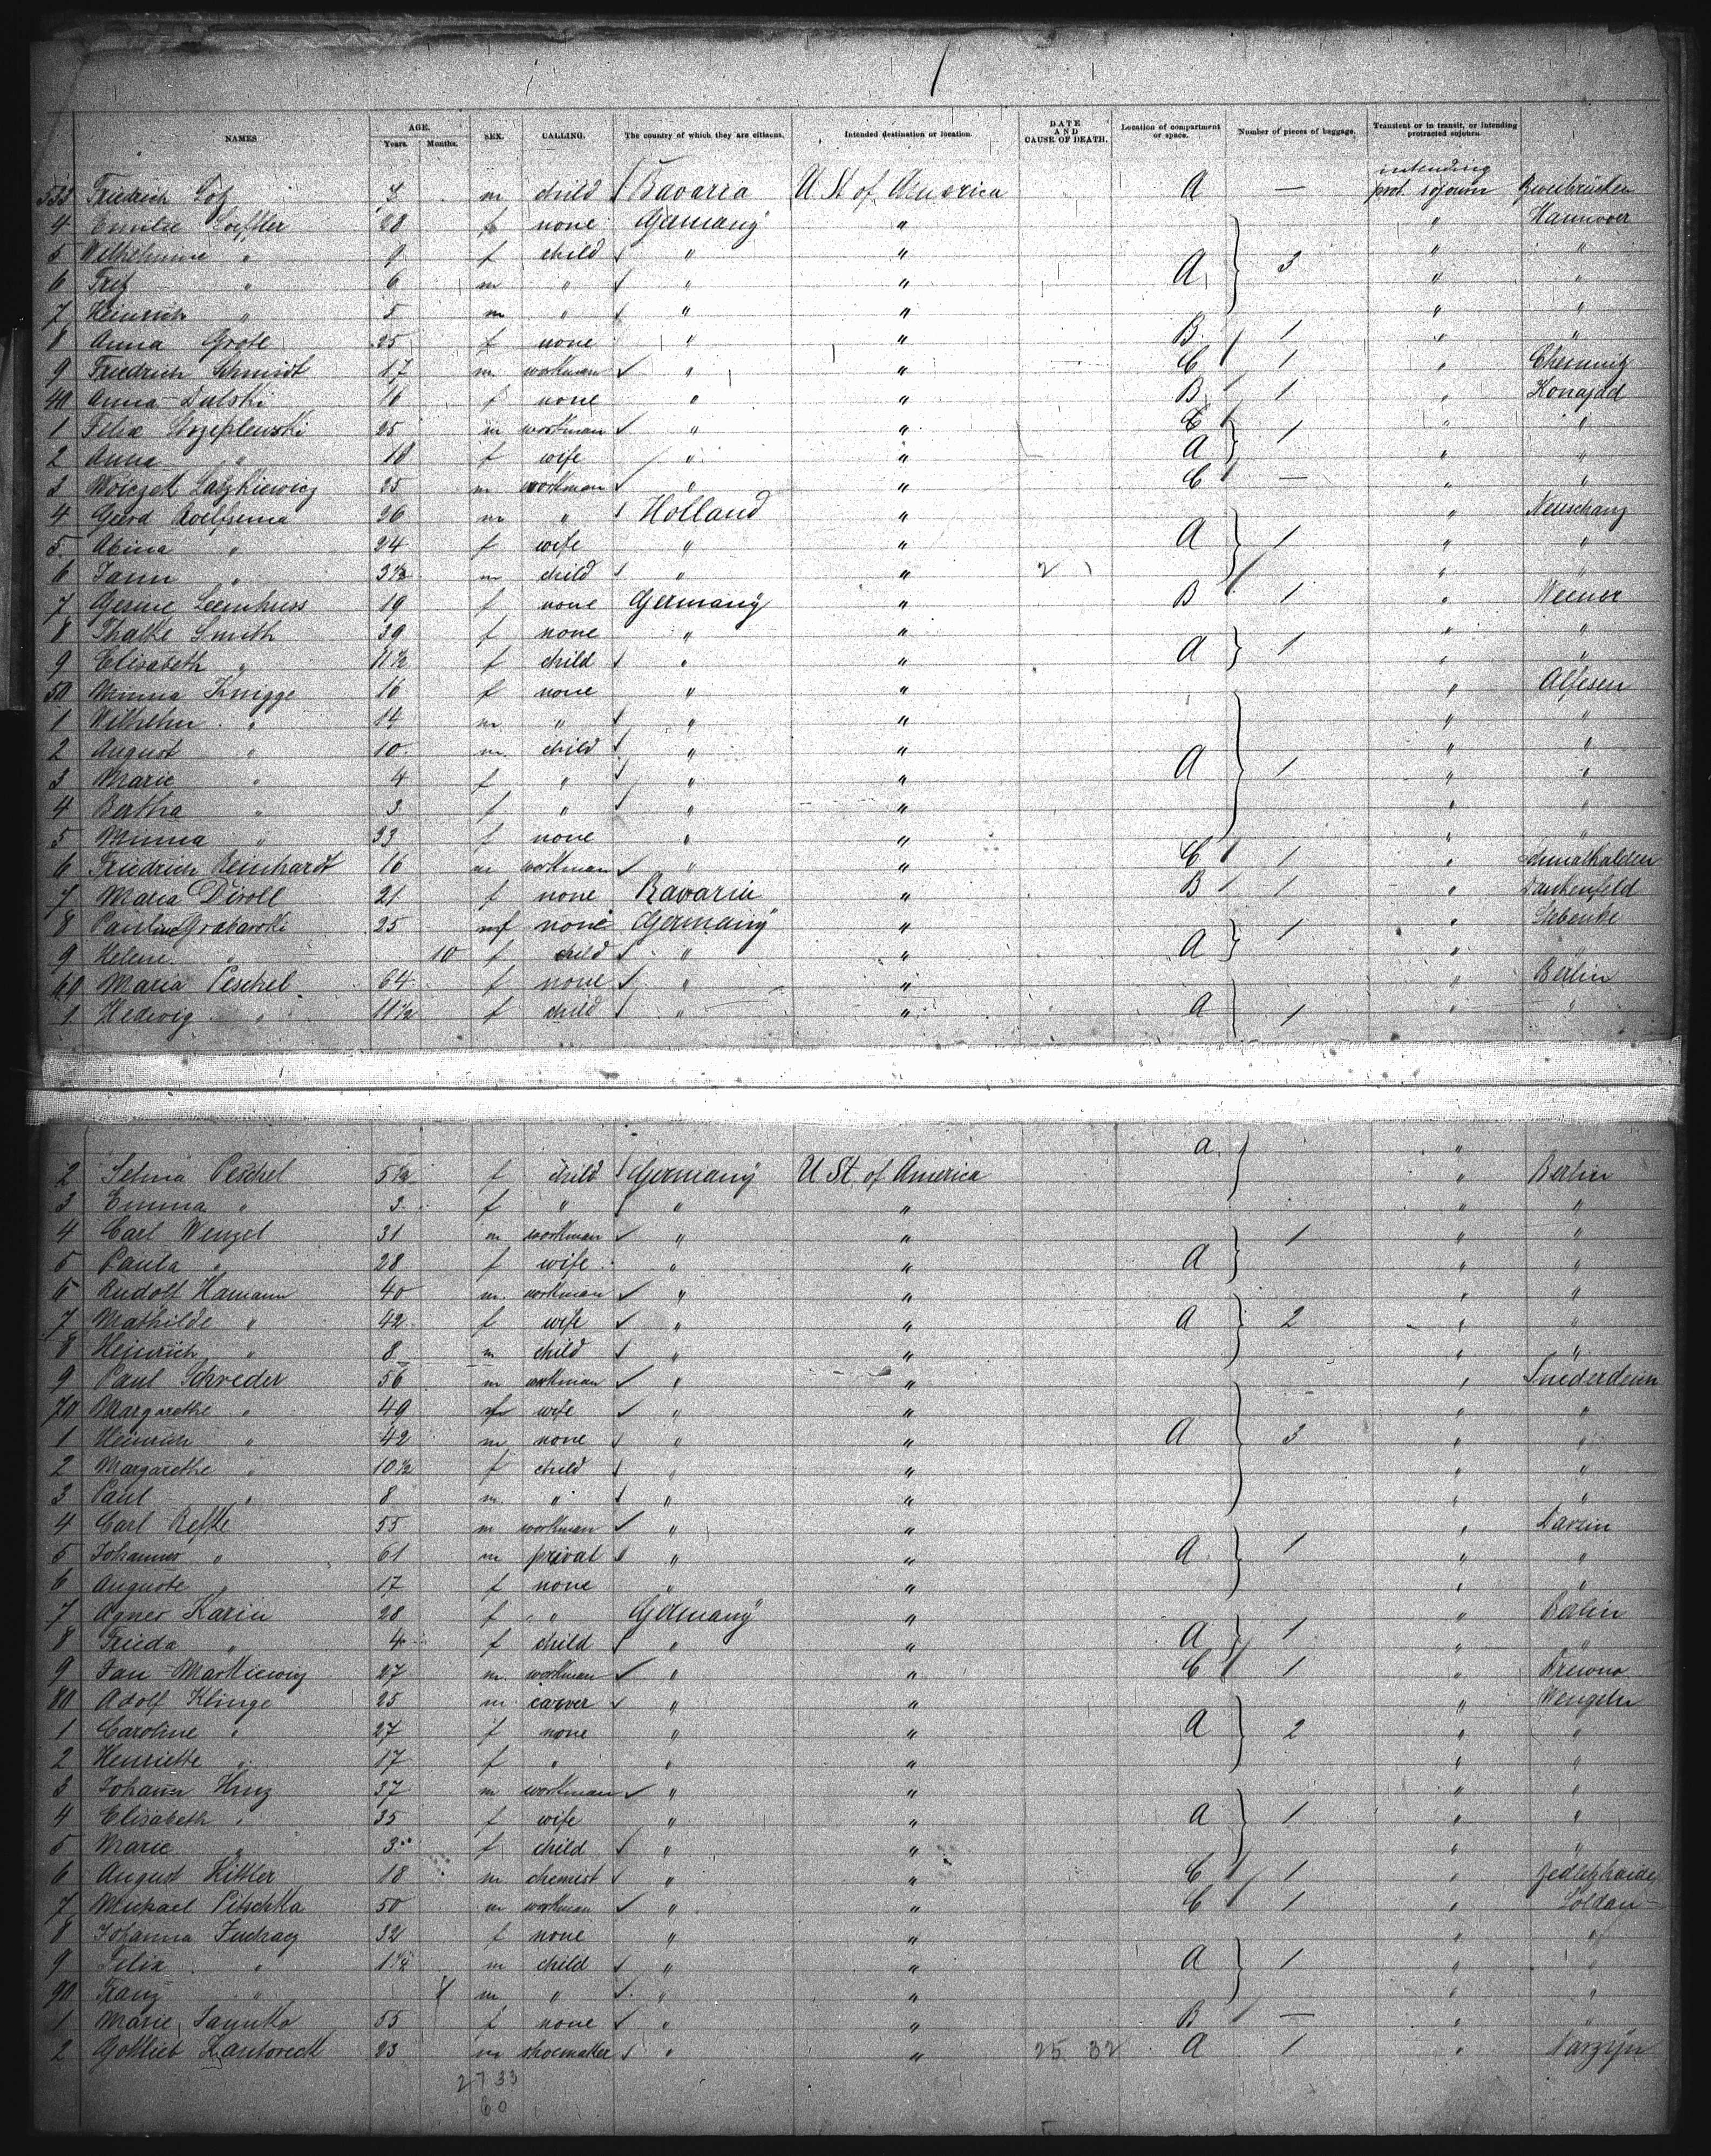 NAMES AGE. Years. Months. SEX. CALLING. The country of which they are citizens. Intended destination or location. DATE AND CAUSE OF DEATH. Location of compartment or space. Number of pieces of baggage. Transient or in transit, or intending protracted sojourn.
533 Friedrich m child Bavaria U St of America A — intending prot sojourn Zweibrücken
4 Emilie Loeffler 28 f none Germany " " Hannover
5 Wilhelmine " 9 f child " " A 3 " "
6 Fritz " 6 m " " " " "
7 Heinrich " 5 m " " " " "
8 Anna Grote 25 f none " " B 1 " "
9 Friedrich Schmidt 17 m workman " " C 1 " Chemnitz
40 Anna Dulski 16 f none " " B 1 " Konajad
1 Felix 25 m workman " " C 1 " "
2 Anna " 18 f wife " " A " "
3 25 m workman " " C — " "
4 Geerd Roelfsema 26 m " Holland " " Neuschanz
5 " 24 f wife " " A 1 " "
6 Jann " 3½ m child " " 2 " "
7 Gesine Leemhuss 19 f none Germany " B 1 " Weener
8 Thalke Smith 39 f none " " " "
9 Elisabeth " 11½ f child " " A 1 " "
50 Minna Knigge 16 f none " " " Alfesen
1 Wilhelm " 14 m " " " " "
2 August " 10 m child " " " "
3 Marie " 4 f " " " A 1 " "
4 Bertha " 3 f " " " " "
5 Minna " 33 f none " " " "
6 Friedrich Reinhardt 16 m workman " " C 1 " Schmalkalden
7 Maria Diroll 21 f none Bavaria " B 1 " Dankenfeld
8 Pauline Grabarski 25 f none Germany " 1 "
9 Helene " 10 f child " " A " "
60 Maria Peschel 64 f none " " " Berlin
1 Hedwig " 11½ f child " " A 1 " "
a "
2 Selma Peschel 5½ f child Germany U St. of America " Berlin
3 Emma " 3 f " " " " "
4 Carl Wenzel 31 m workman " " 1 " "
5 Paula " 28 f wife " " A " "
6 Rudolf Hamann 40 m workman " " " "
7 Mathilde " 42 f wife " " A 2 " "
8 Heinrich " 8 m child " " " "
9 Paul Schreder 56 m workman " " "
70 Margarethe " 49 f wife " " " "
1 Heinrich " 42 m none " " A 3 " "
2 Margarethe " 10½ f child " " " "
3 Paul " 8 m " " " " "
4 Carl Refke 55 m workman " " "
5 Johannes " 61 m privat " " A 1 " "
6 Auguste " 17 f none " " " "
7 Agnes Karin 28 f " Germany " " Berlin
8 Frieda " 4 f child " " A 1 " "
9 Jan Markiewicz 27 m workman " " C 1 "
80 Adolf Klinge 25 m carver " " " Wengeln
1 Caroline " 27 f none " " A 2 " "
2 Henriette " 17 f " " " " "
3 Johann Hinz 37 m workman " " " "
4 Elisabeth " 35 f wife " " A 1 " "
5 Marie " 3 f child " " " "
6 August Kittler 18 m chemist " " C 1 "
7 Michael Pitschka 50 m workman " " C 1 " Soldau
8 Johanna 32 f none " " " "
9 Felix " 1½ m child " " A 1 " "
90 Franz " m " " " " "
1 Marie 55 f none " " B — " "
2 Gottlieb Kantoreck 23 m shoemaker " " 25 32 A 1 " Narzym
27 33
60